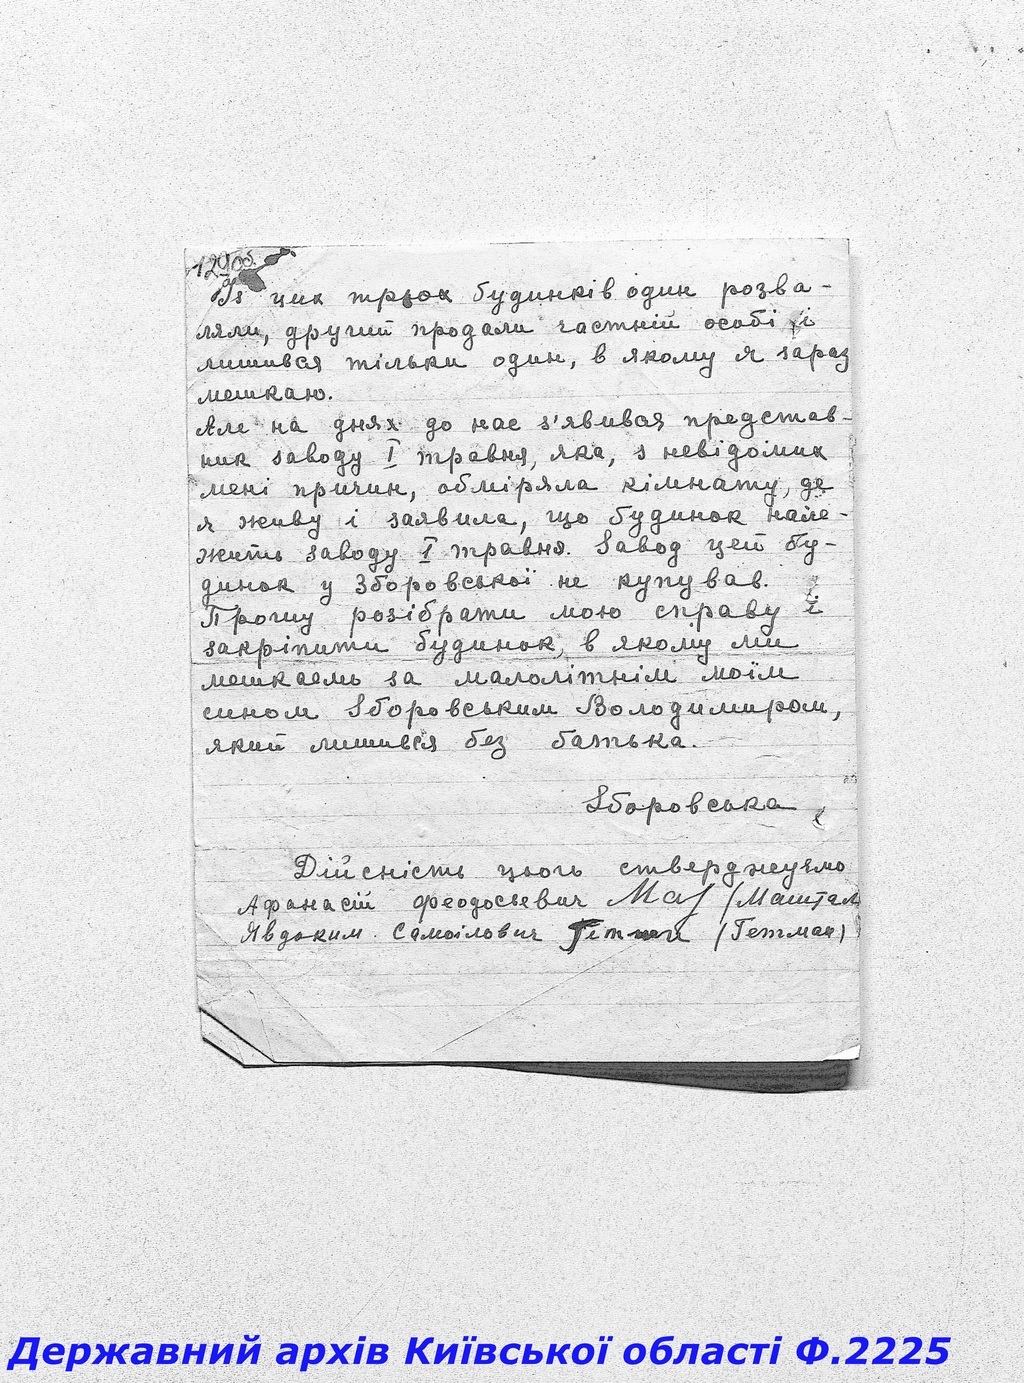 Із цих трьох будинків один розва-
ляли, другий продали частній особі і
лишився тільки один, в якому я зараз
мешкаю.
Але на днях до нас з'явився представ-
ник заводу I травня, яка, з невідомих
мені причин, обміряла кімнату, де
я живу і заявила, що будинок нале-
жить заводу I травня. Завод цей бу-
динок у Зборовської не купував.
Прошу розібрати мою справу і
закріпити будинок, в якому ми
мешкаемь за малолітнім моїм
сином Зборовським Володимиром,
який лишився без батька.
Зборовська
Дійсність цього стверджуємо
Афанасій Феодосьевич (Маштал
Явдоким Самоілович (Гетман)
Державний архів Київської області Ф.2225